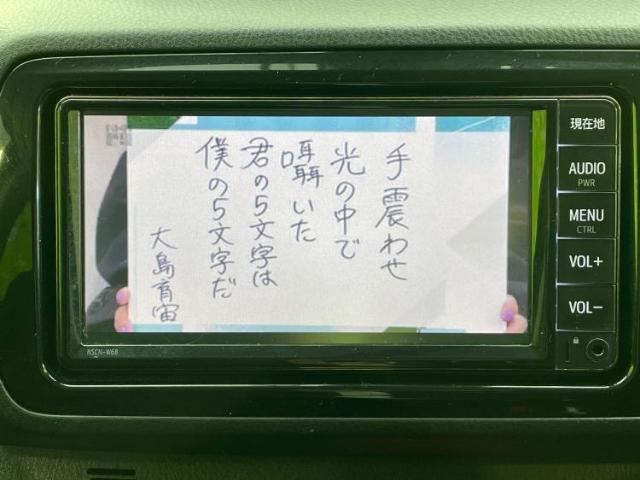 手震わせ
光の中で
囁いた
君の5文字は
僕の5文字だ
大島育宙
現在地
AUDIO
PWR
MENU
CTRL
VOL+
VOL−
NSCN-W68